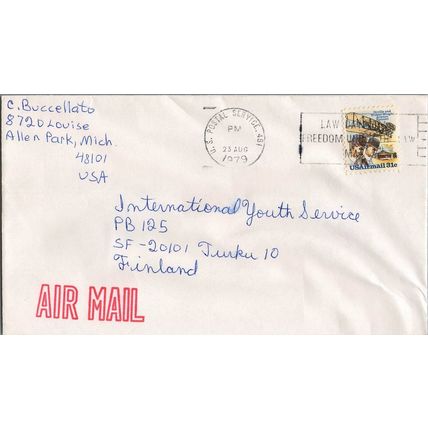 C. Buccellato
8720 Louise
Allen Park, Mich.
48101
USA
U.S. POSTAL SERVICE 481
PM
23 AUG
1979
LAW DAY
FREEDOM UNDER LAW
MAY
USAirmail 31c
International Youth Service
PB 125
SF-20101 Turku 10
Finland
AIR MAIL